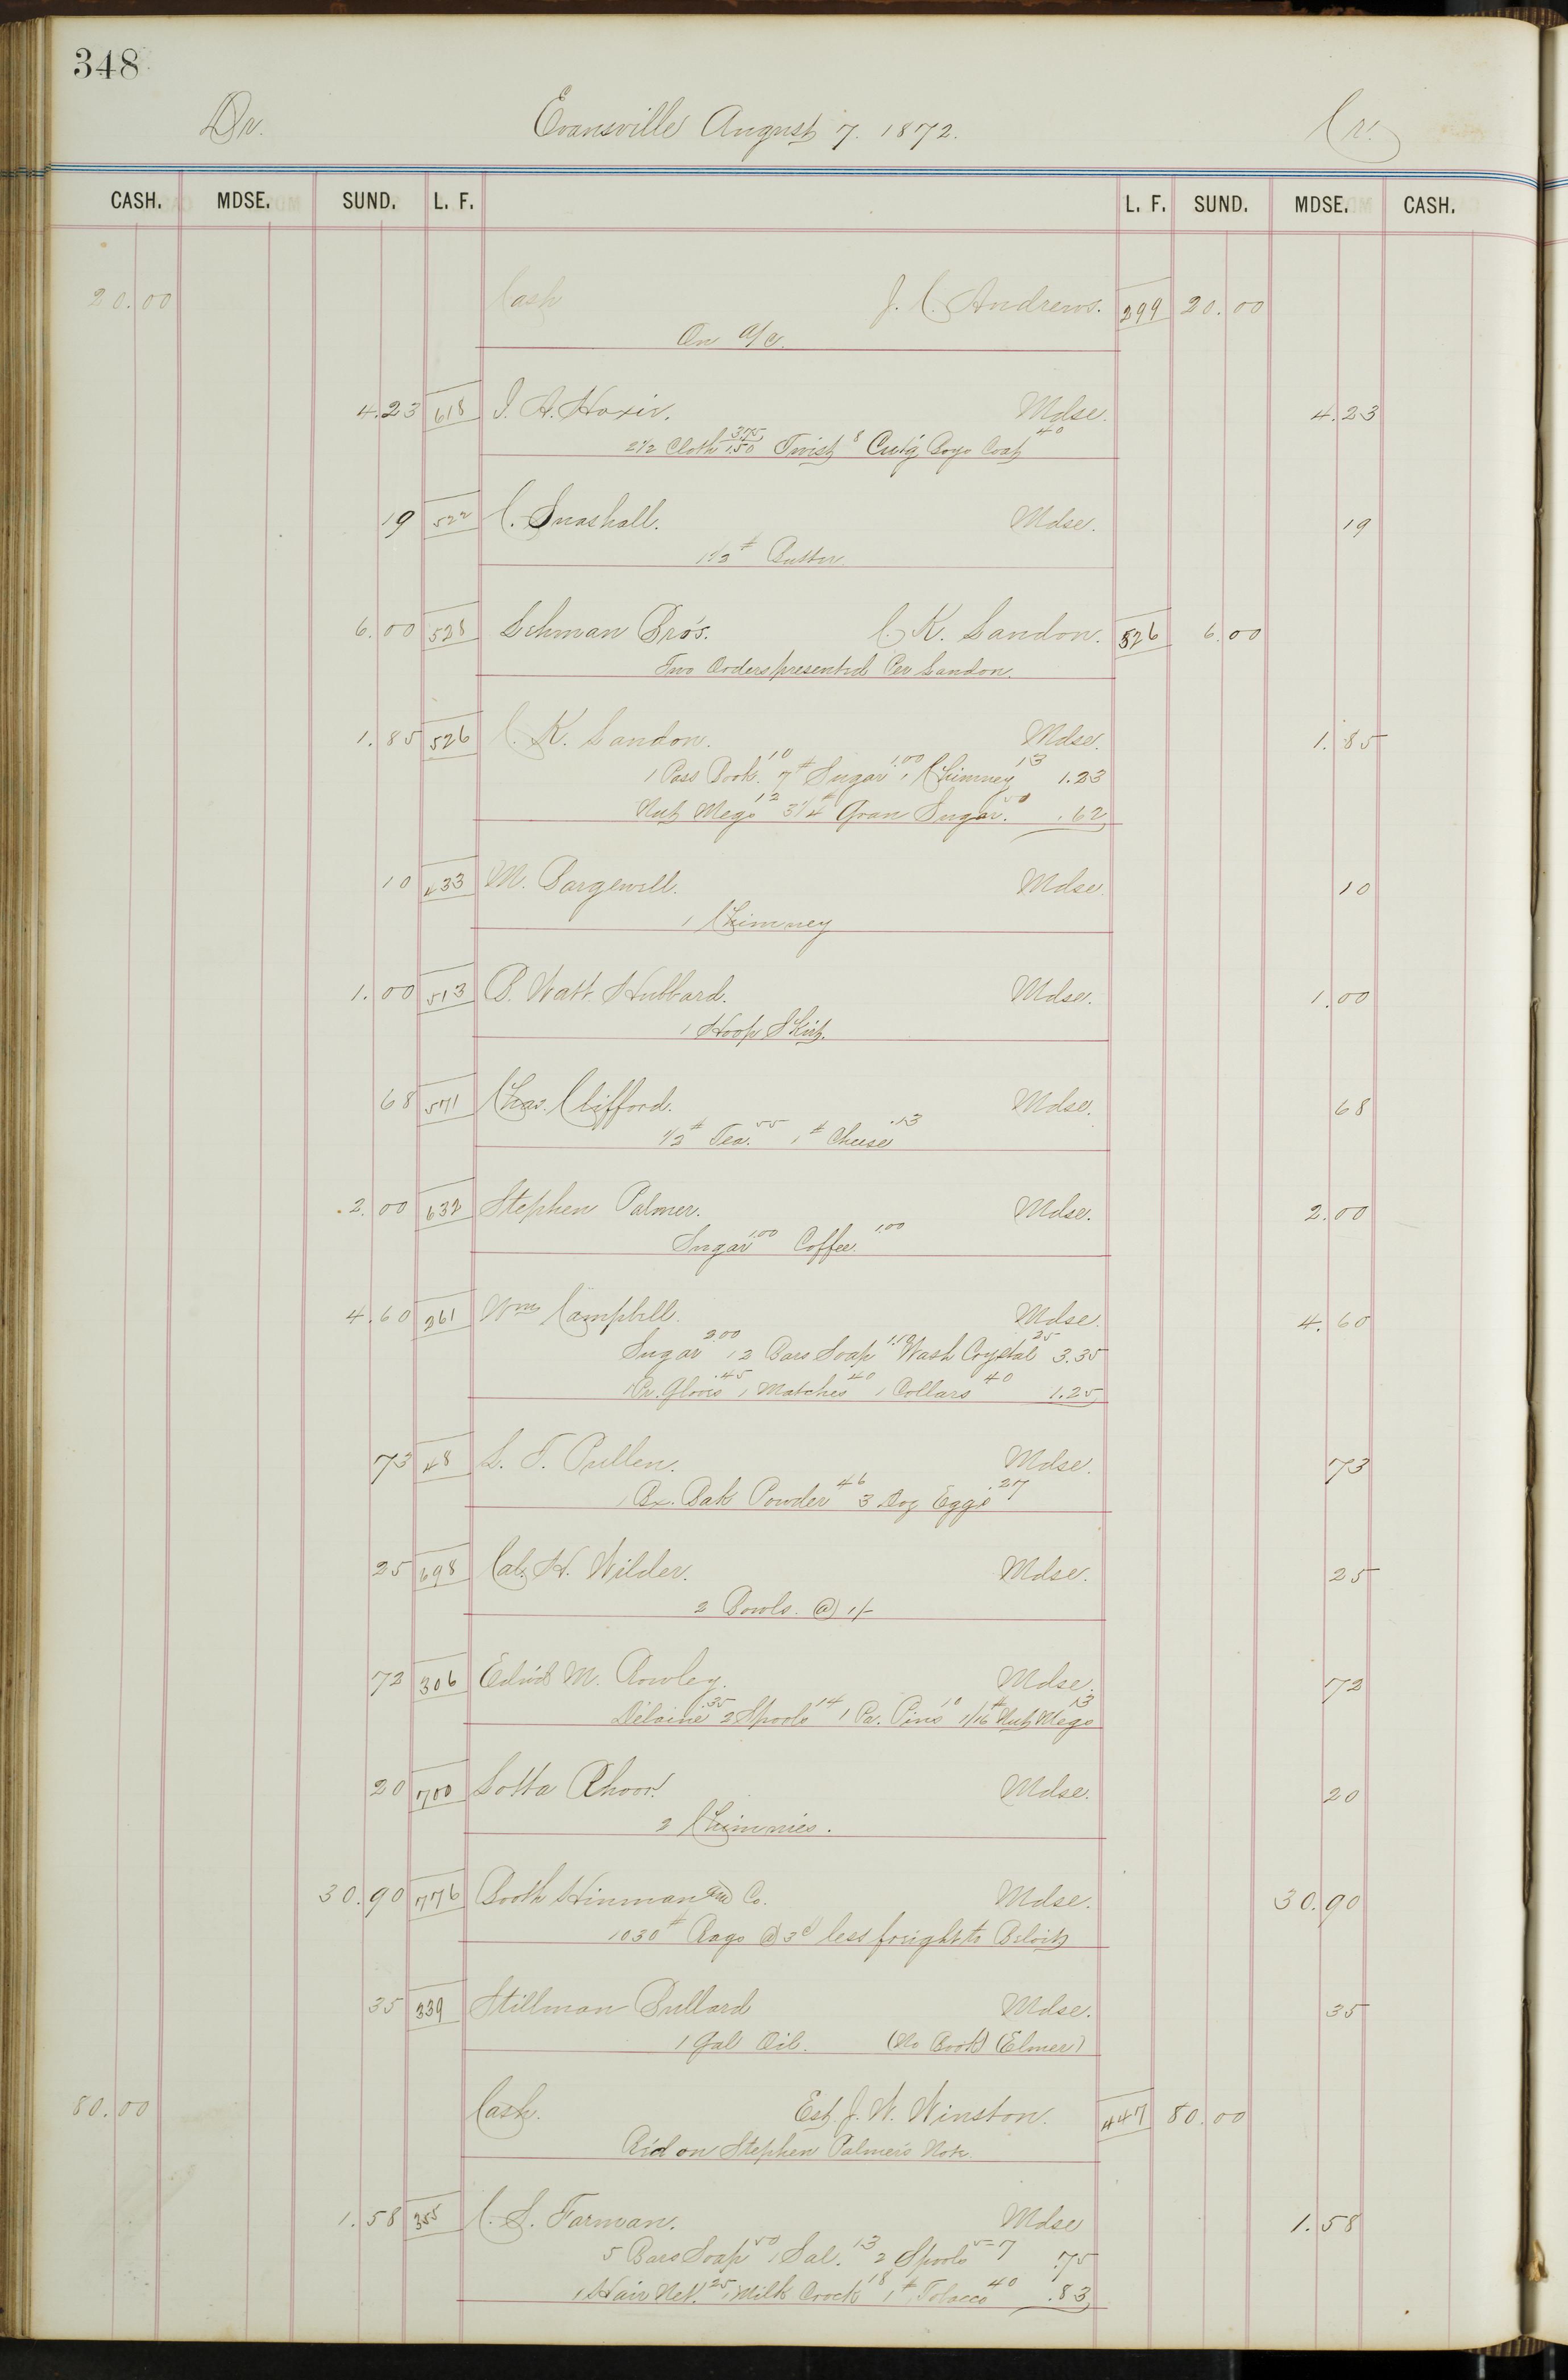 348
Dr. Evansville August 7. 1872. Cr.
CASH. MDSE. SUND. L. F. L. F. SUND. MDSE. CASH.
20.00 Cash J. C. Andrews. 299 20.00
On a/c.
4.23 618 I. A. Hoxie. Mdse. 4.23
2 1/2 Cloth 1.50 3.75 Twist 8 Cut'g Boys Coat 40
19 522 C. Snashall. Mdse. 19
1 1/2 # Butter
6.00 528 Lehman Bro's. C. K. Landon. 526 6.00
Two Orders presented Per Landon.
1.85 526 C. K. Landon. Mdse. 1.85
1 Pass Book. 10 7 # Sugar 1.00 1 Chimney 13 1.23
Nut Megs 12 3 1/4 # Gran Sugar. 50 .62
10 433 M. Bargewell. Mdse. 10
1 Chimney
1.00 513 B. Watt Hubbard. Mdse. 1.00
1 Hoop Skirt.
68 571 Chas. Clifford. Mdse. 68
1/2 # Tea. 55 1 # Cheese .13
2.00 632 Stephen Palmer. Mdse. 2.00
Sugar 1.00 Coffee 1.00
4.60 261 Wm Campbell. Mdse. 4.60
Sugar 2.00 12 Bars Soap 1.10 Wash Crystal 25 3.35
1 Pr. Gloves .45 1 Matches 40 1 Collars 40 1.25
73 48 L. T. Pullen. Mdse. 73
1 Bx. Bak Powder 46 3 Doz Eggs .27
25 698 Cal. H. Wilder. Mdse. 25
2 Bowls. @ 1/-
72 306 Edw'd M. Rowley. Mdse. 72
Delaine .35 2 Spools 14 1 Pa. Pins 10 1/16 # Nut Megs 13
20 700 Lotta Mdse. 20
2 Chimnies.
30.90 776 Booth Hinman and Co. Mdse. 30.90
1030 # Rags @ 3c less freight to Beloit
35 339 Stillman Bullard Mdse. 35
1 Gal Oil. (No Book) (Elmer)
80.00 Cash. Est. J. W. Winston. 447 80.00
R'c'd on Stephen Palmers Note.
1.58 355 C. S. Forman. Mdse 1.58
5 Bars Soap 50 1 Sal. 13 2 Spools 5-7 .75
1 Hair Net. 25 1 Milk Crock 18 1 # Tobacco 40 .83